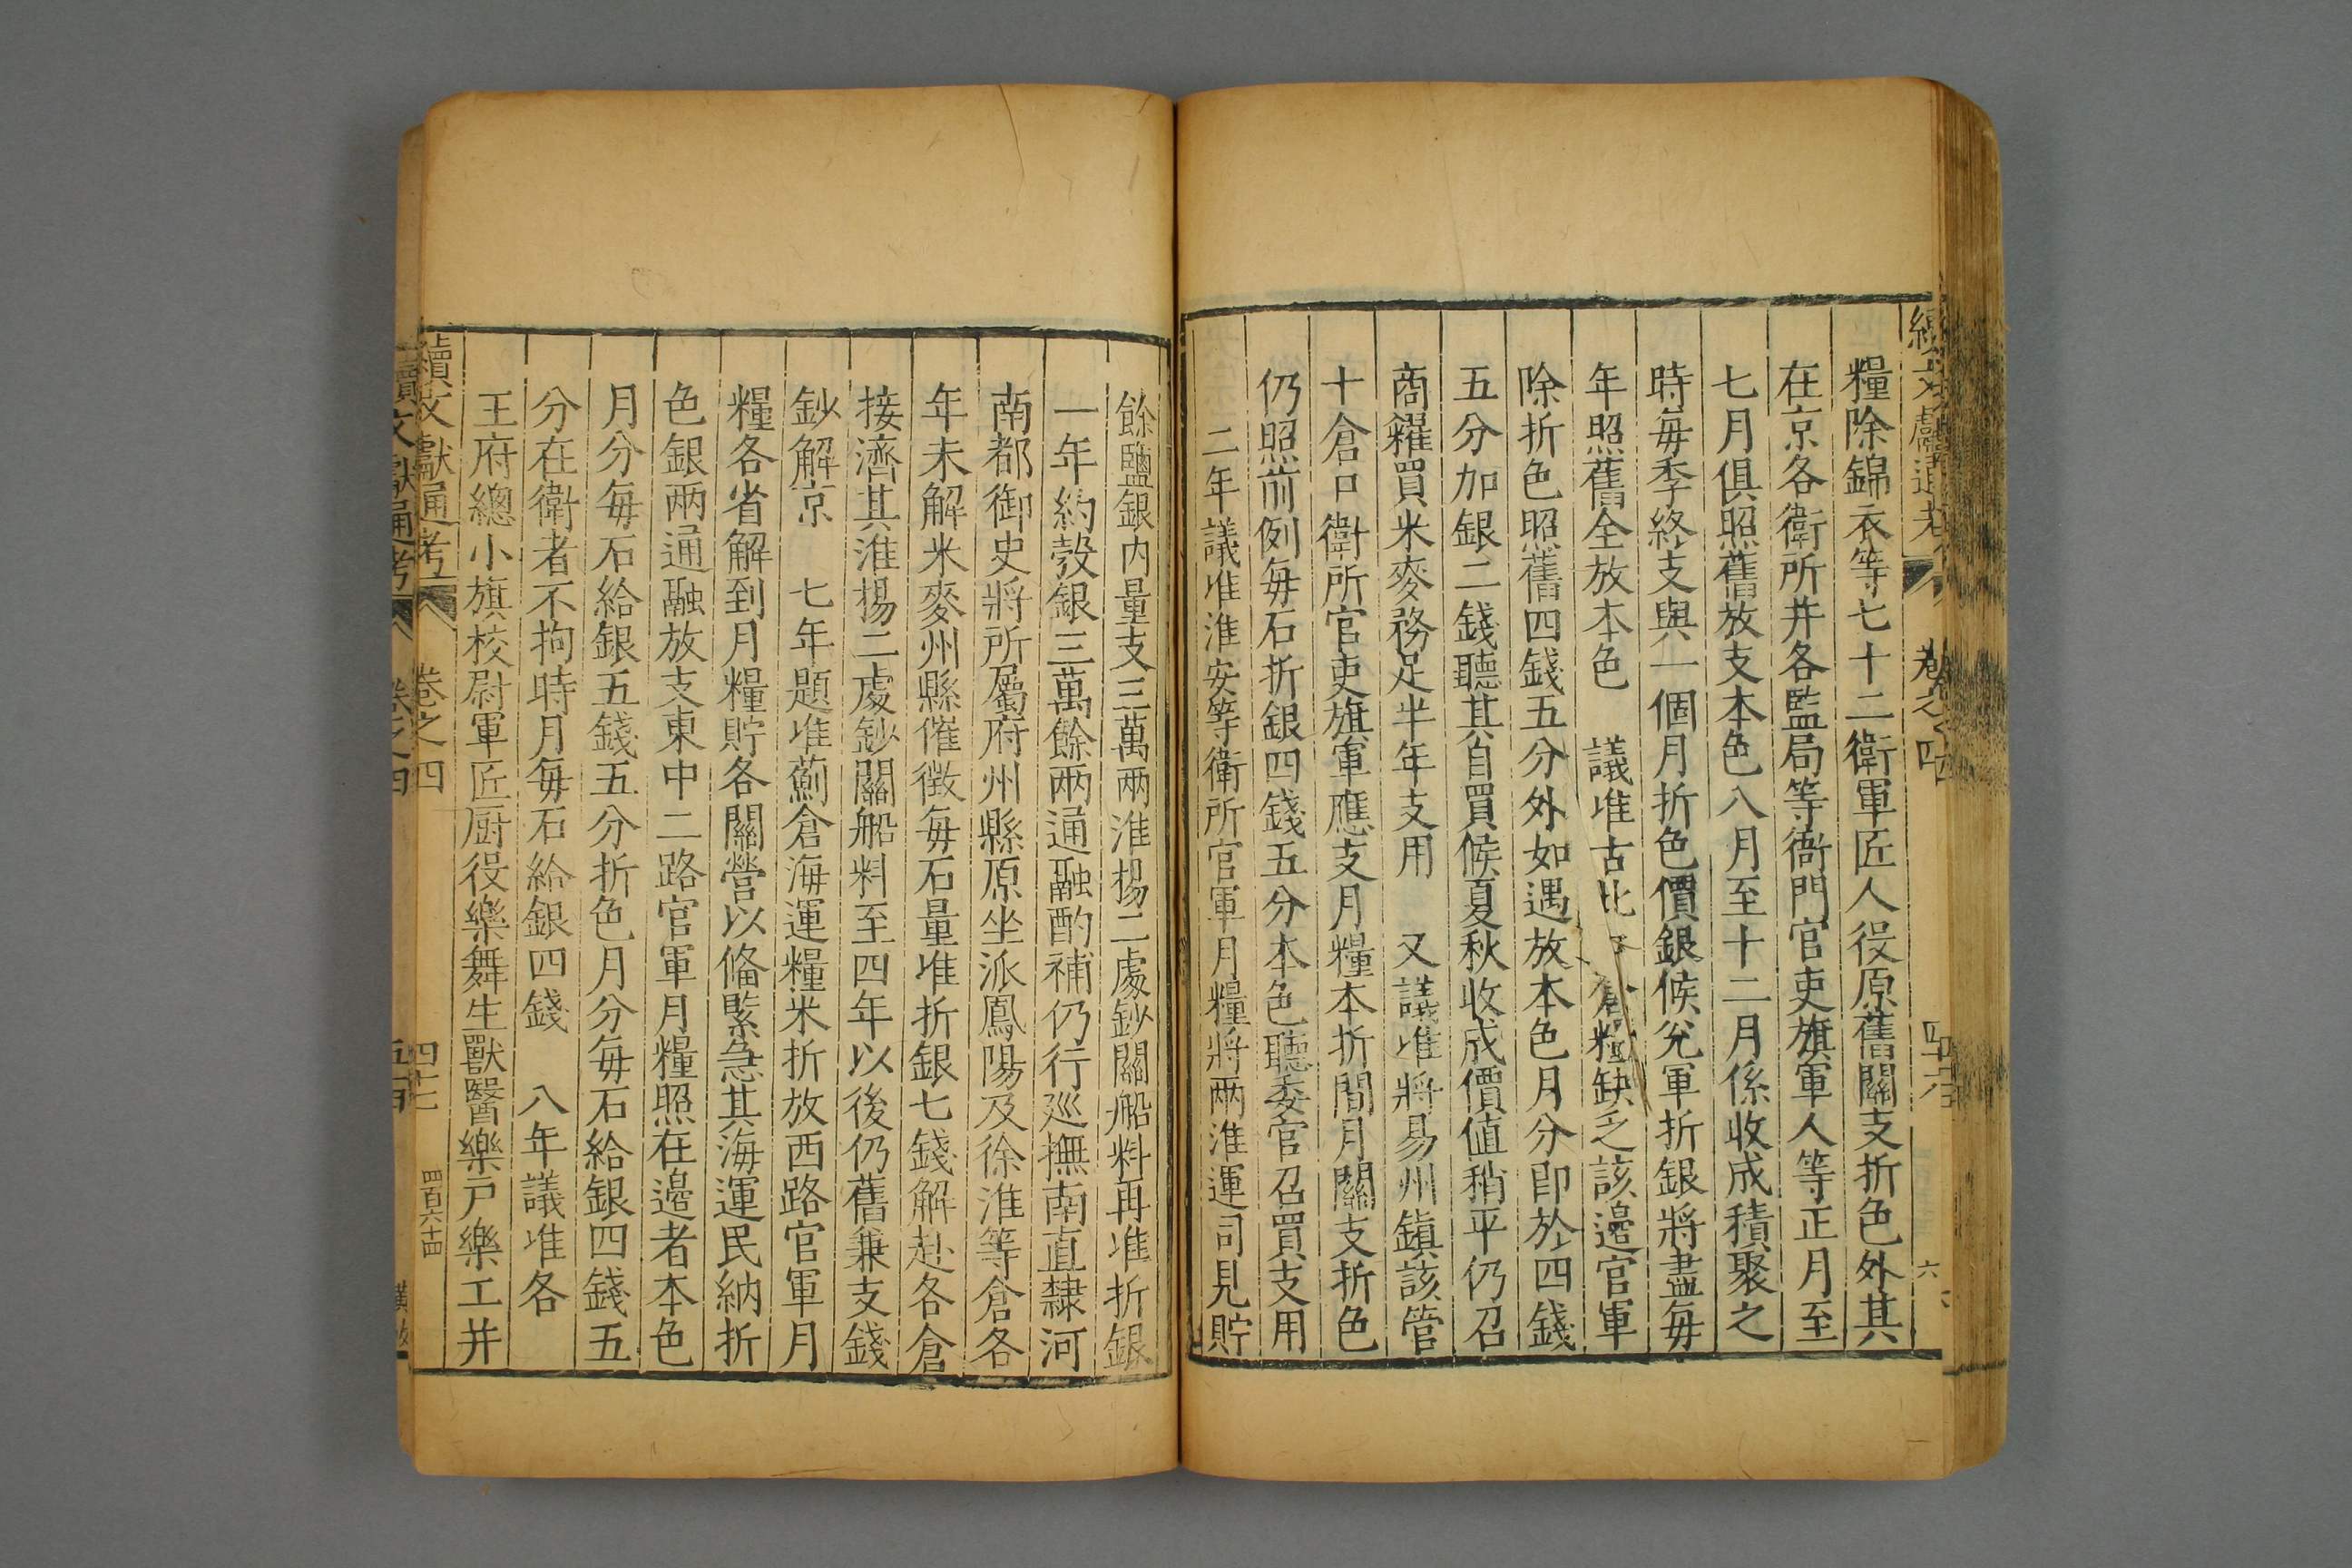 續文獻通考 卷之四 四十六 六
糧除錦衣等七十二衛軍匠人役原舊關支折色外其
在京各衛所并各監局等衙門官吏旗軍人等正月至
七月俱照舊放支本色八月至十二月係收成積聚之
時每季終支與一個月折色價銀候兌軍折銀將盡每
年照舊全放本色 議准古北 倉糧缺乏該邊官軍
除折色照舊四錢五分外如遇放本色月分卽於四錢
五分加銀二錢聽其自買候夏秋收成價值稍平仍召
商糴買米麥務足半年支用 又議准將易州鎮該管
十倉口衛所官吏旗軍應支月糧本折間月關支折色
仍照前例每石折銀四錢五分本色聽委官召買支用
二年議准淮安等衛所官軍月糧將兩淮運司見貯
餘鹽銀內量支三萬兩淮揚二處鈔關船料再准折銀
一年約彀銀三萬餘兩通融酌補仍行巡撫南直隸河
南都御史將所屬府州縣原坐派鳳陽及徐淮等倉各
年未解米麥州縣催徵每石量准折銀七錢解赴各倉
接濟其淮揚二處鈔關船料至四年以後仍舊兼支錢
鈔解京 七年題准薊倉海運糧米折放西路官軍月
糧各省解到月糧貯各關營以備緊急其海運民納折
色銀兩通融放支東中二路官軍月糧照在邊者本色
月分每石給銀五錢五分折色月分每石給銀四錢五
分在衛者不拘時月每石給銀四錢 八年議准各
王府總小旗校尉軍匠厨役樂舞生獸醫樂戶樂工并
續文獻通考 卷之四 四十七 四百六十四
續文獻通考 卷之四